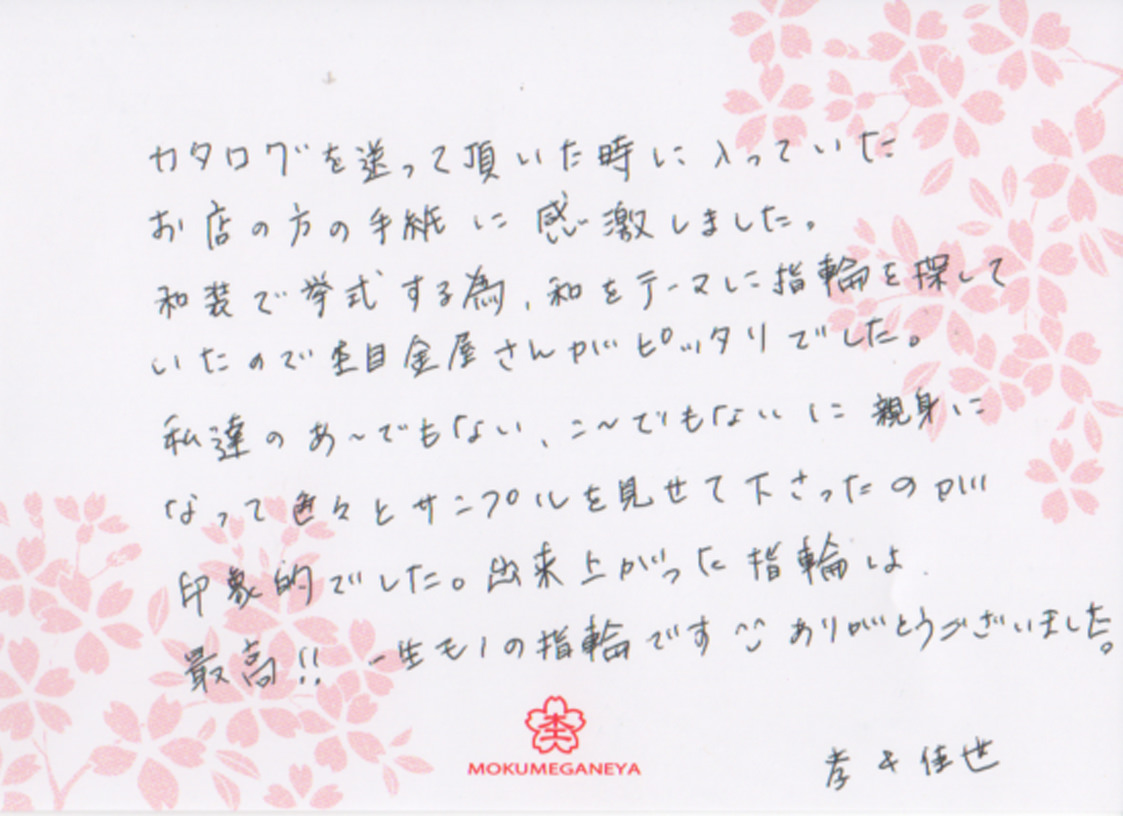 カタログを送って頂いた時に入っていた
お店の方の手紙に感激しました。
和装で挙式する為、和をテーマに指輪を探して
いたので杢目金屋さんがピッタリでした。
私達のあ〜でもない、こ〜でもないに親身に
なって色々とサンプルを見せて下さったのが
印象的でした。出来上がった指輪は
最高!! 一生モノの指輪です^^ ありがとうございました。
杢
MOKUMEGANEYA
孝 & 佳世